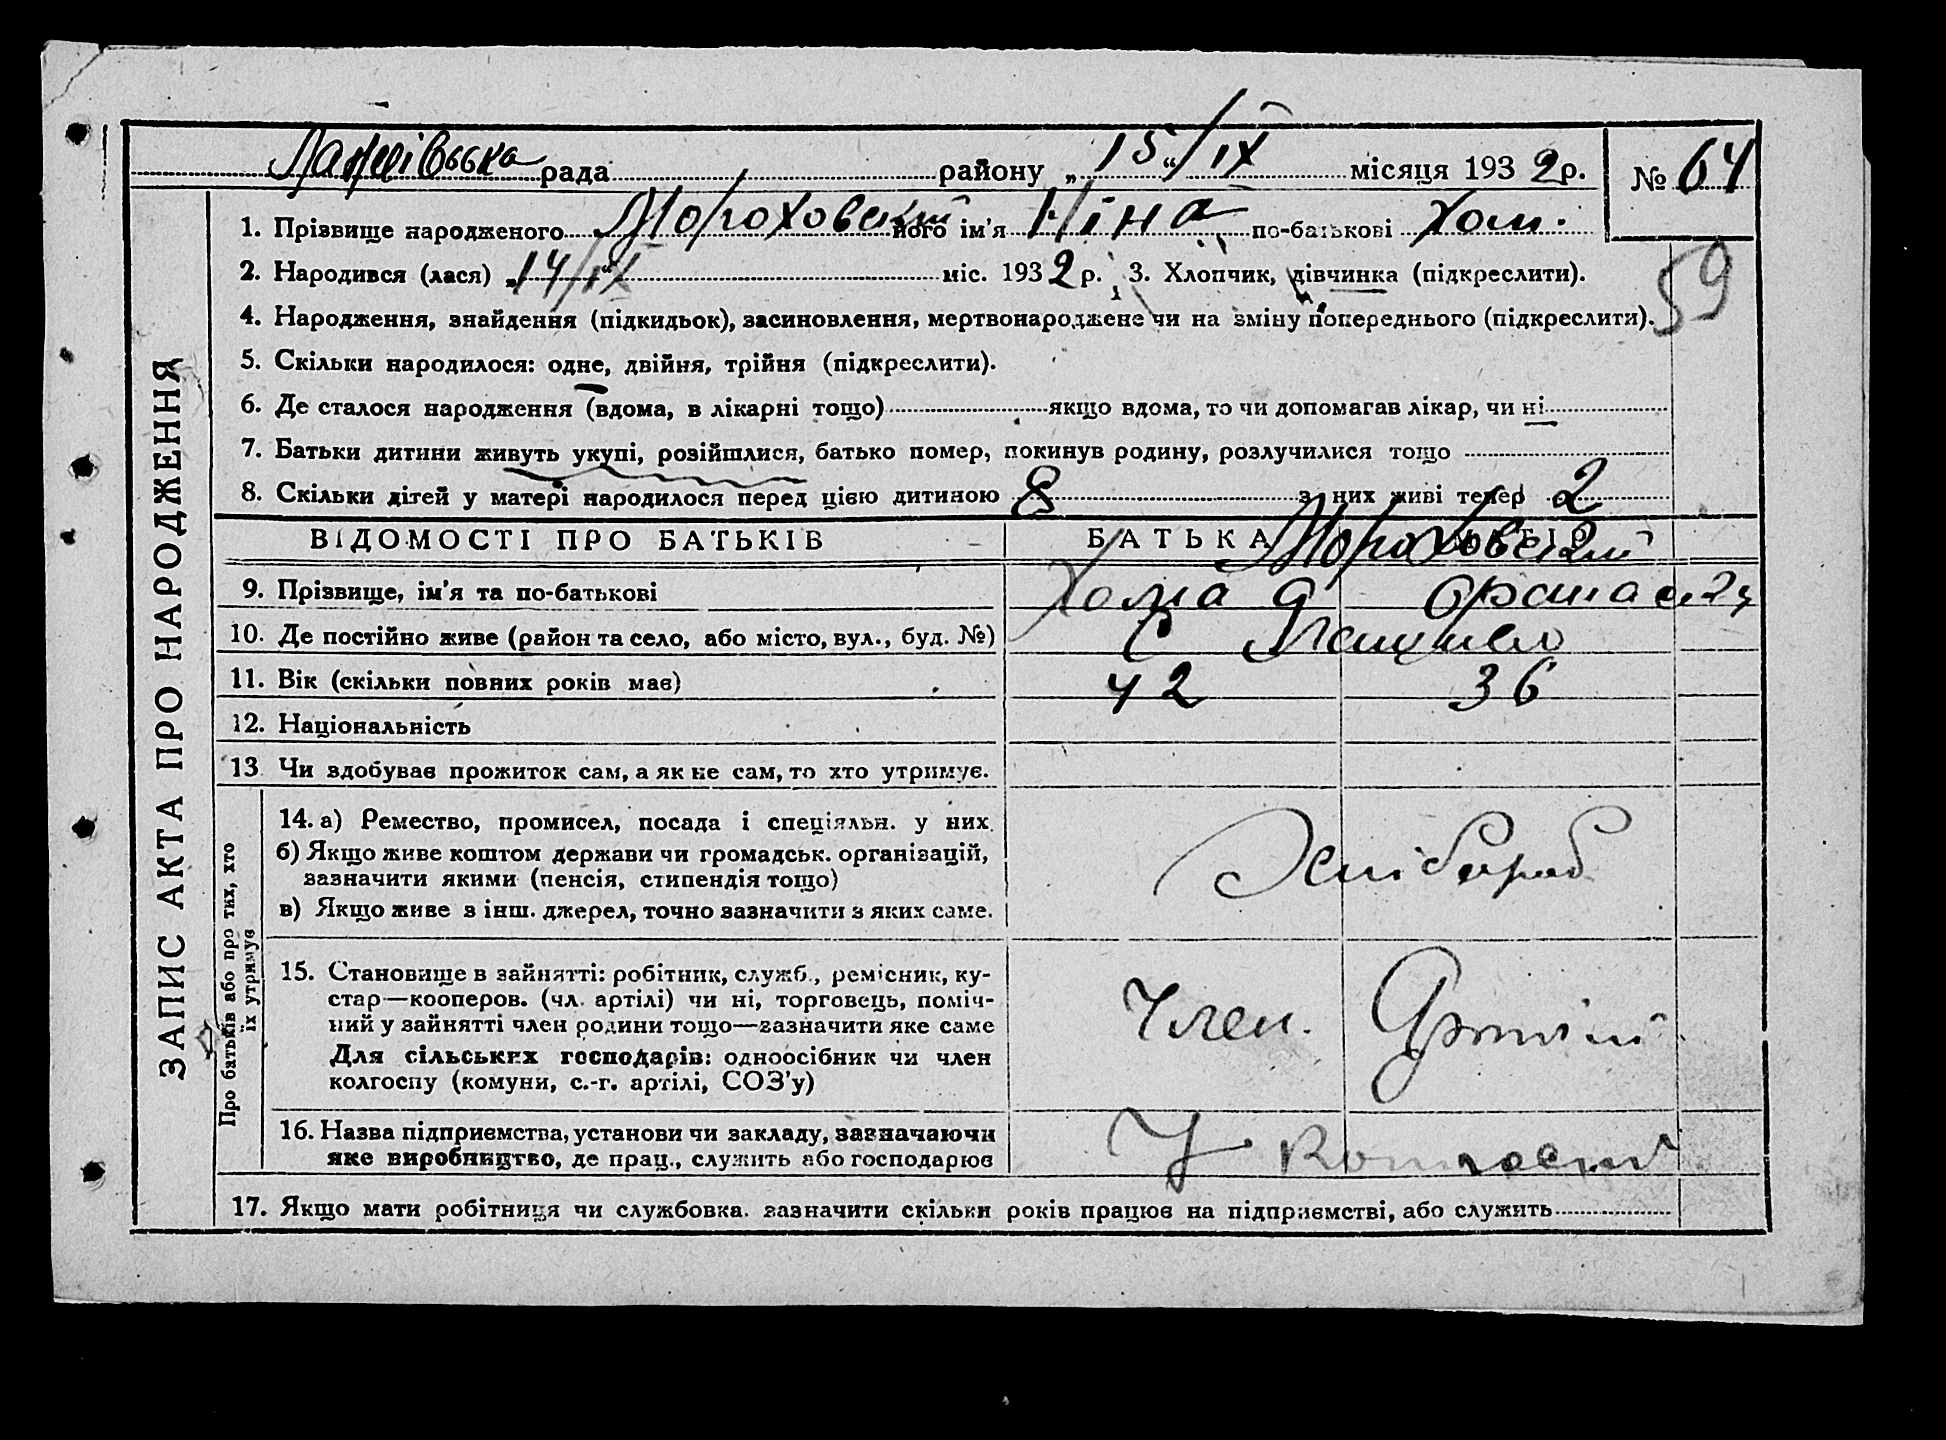 рада района „15“/IX місяця 1932р. № 64
1. Прізвище народженого Мороховський його ім'я Ніна по-батькові Хом.
2. Народився (лася) „14/IX міс. 1932 р. 3. Хлопчик, дівчинка (підкреслити).
59
4. Народження, знайдення (підкидьок), засиновлення, мертвонароджене чи на зміну попереднього (підкреслити).
5. Скільки народилося: одне, двійня, трійня (підкреслити).
6. Де сталося народження (вдома, в лікарні тощо) якщо вдома, то чи допомагав лікар, чи ні
7. Батьки дитини живуть укупі, розійшлися, батько помер, покинув родину, розлучилися тощо
8. Скільки дітей у матері народилося перед цією дитиною 8 з них живі тепер 2
ВІДОМОСТІ ПРО БАТЬКІВ БАТЬКА Мороховский
9. Прізвище, ім'я та по-батькові Хома
10. Де постійно живе (район та село, або місто, вул., буд. №) с
11. Вік (скільки повних років має) 42 36
12. Національність
13 Чи здобуває прожиток сам, а як не сам, то хто утримує.
14. а) Ремество, промисел, посада і спеціяльн. у них.
б) Якщо живе коштом держави чи громадськ. організацій,
зазначити якими (пенсія, стипендія тощо)
в) Якщо живе з інш. джерел, точно зазначити з яких саме.
Хлібороб
15. Становище в зайнятті: робітник, служб., ремісник, ку-
стар—кооперов. (чл. артілі) чи ні, торговець, поміч-
ний у зайнятті член родини тощо—зазначити яке саме
Для сільських господарів: одноосібник чи член
колгоспу (комуни, с.-г. артілі, СОЗ'у)
Член. Артіли
16. Назва підприємства, установи чи закладу, зазначаючи
яке виробництво, де прац., служить або господарює
У колгоспі
17. Якщо мати робітниця чи службовка. зазначити скільки років працює на підприємстві, або служить
ЗАПИС АКТА ПРО НАРОДЖЕННЯ
Про батьків або про тих, хто
їх утримує